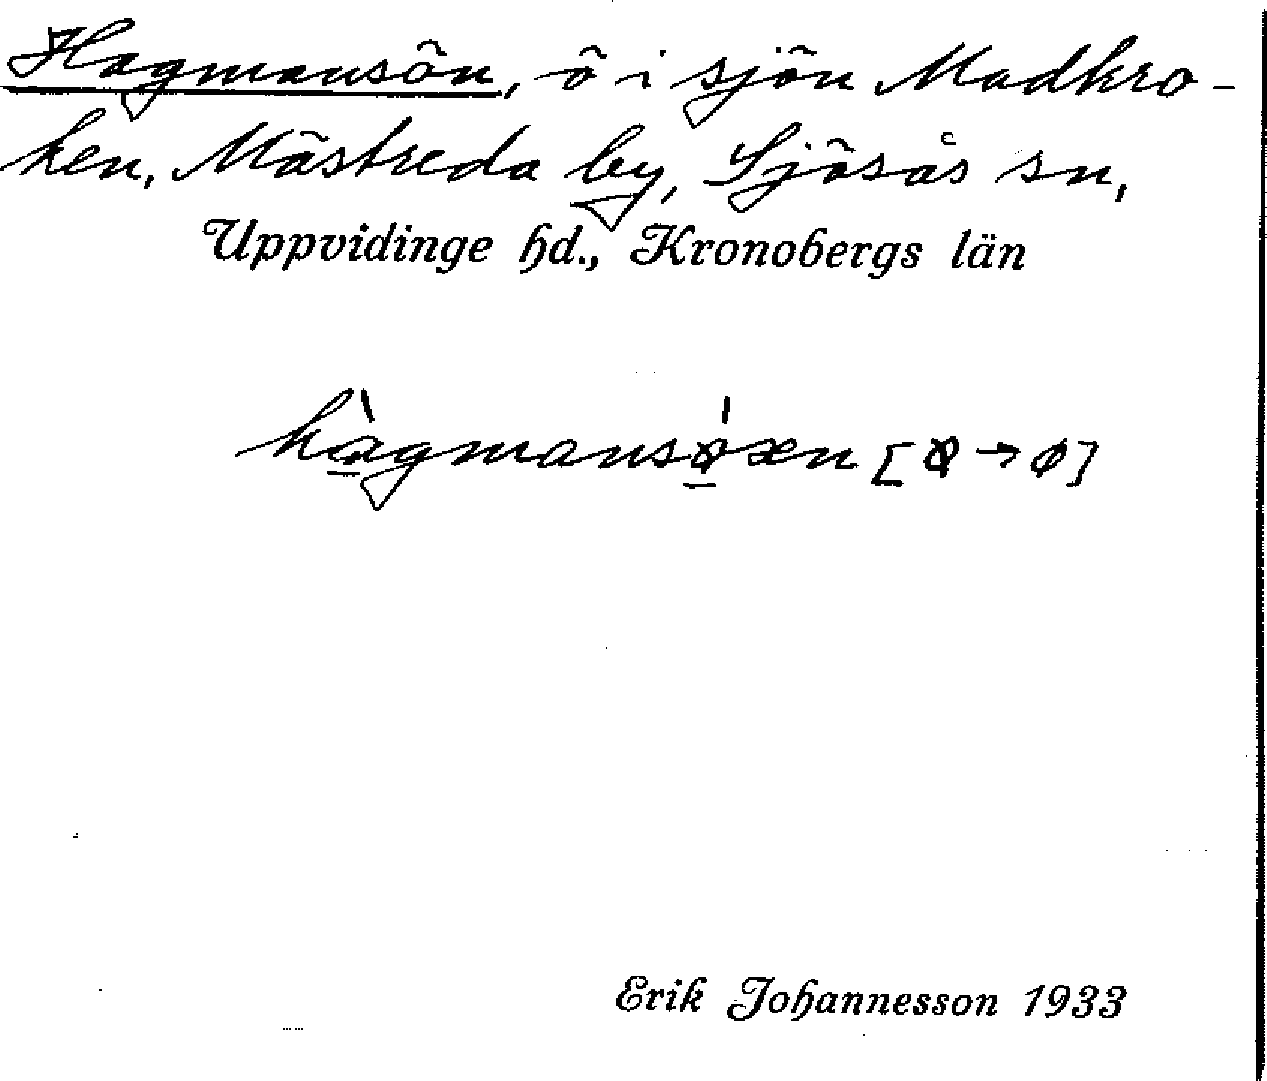 Hagmansön, ö i sjön Madkro-
ken, Mästreda by, Sjösås sn,
Uppvidinge hd., Kronobergs län
hàgmansǿxn [ꞗ → ø]
Erik Johannesson 1933